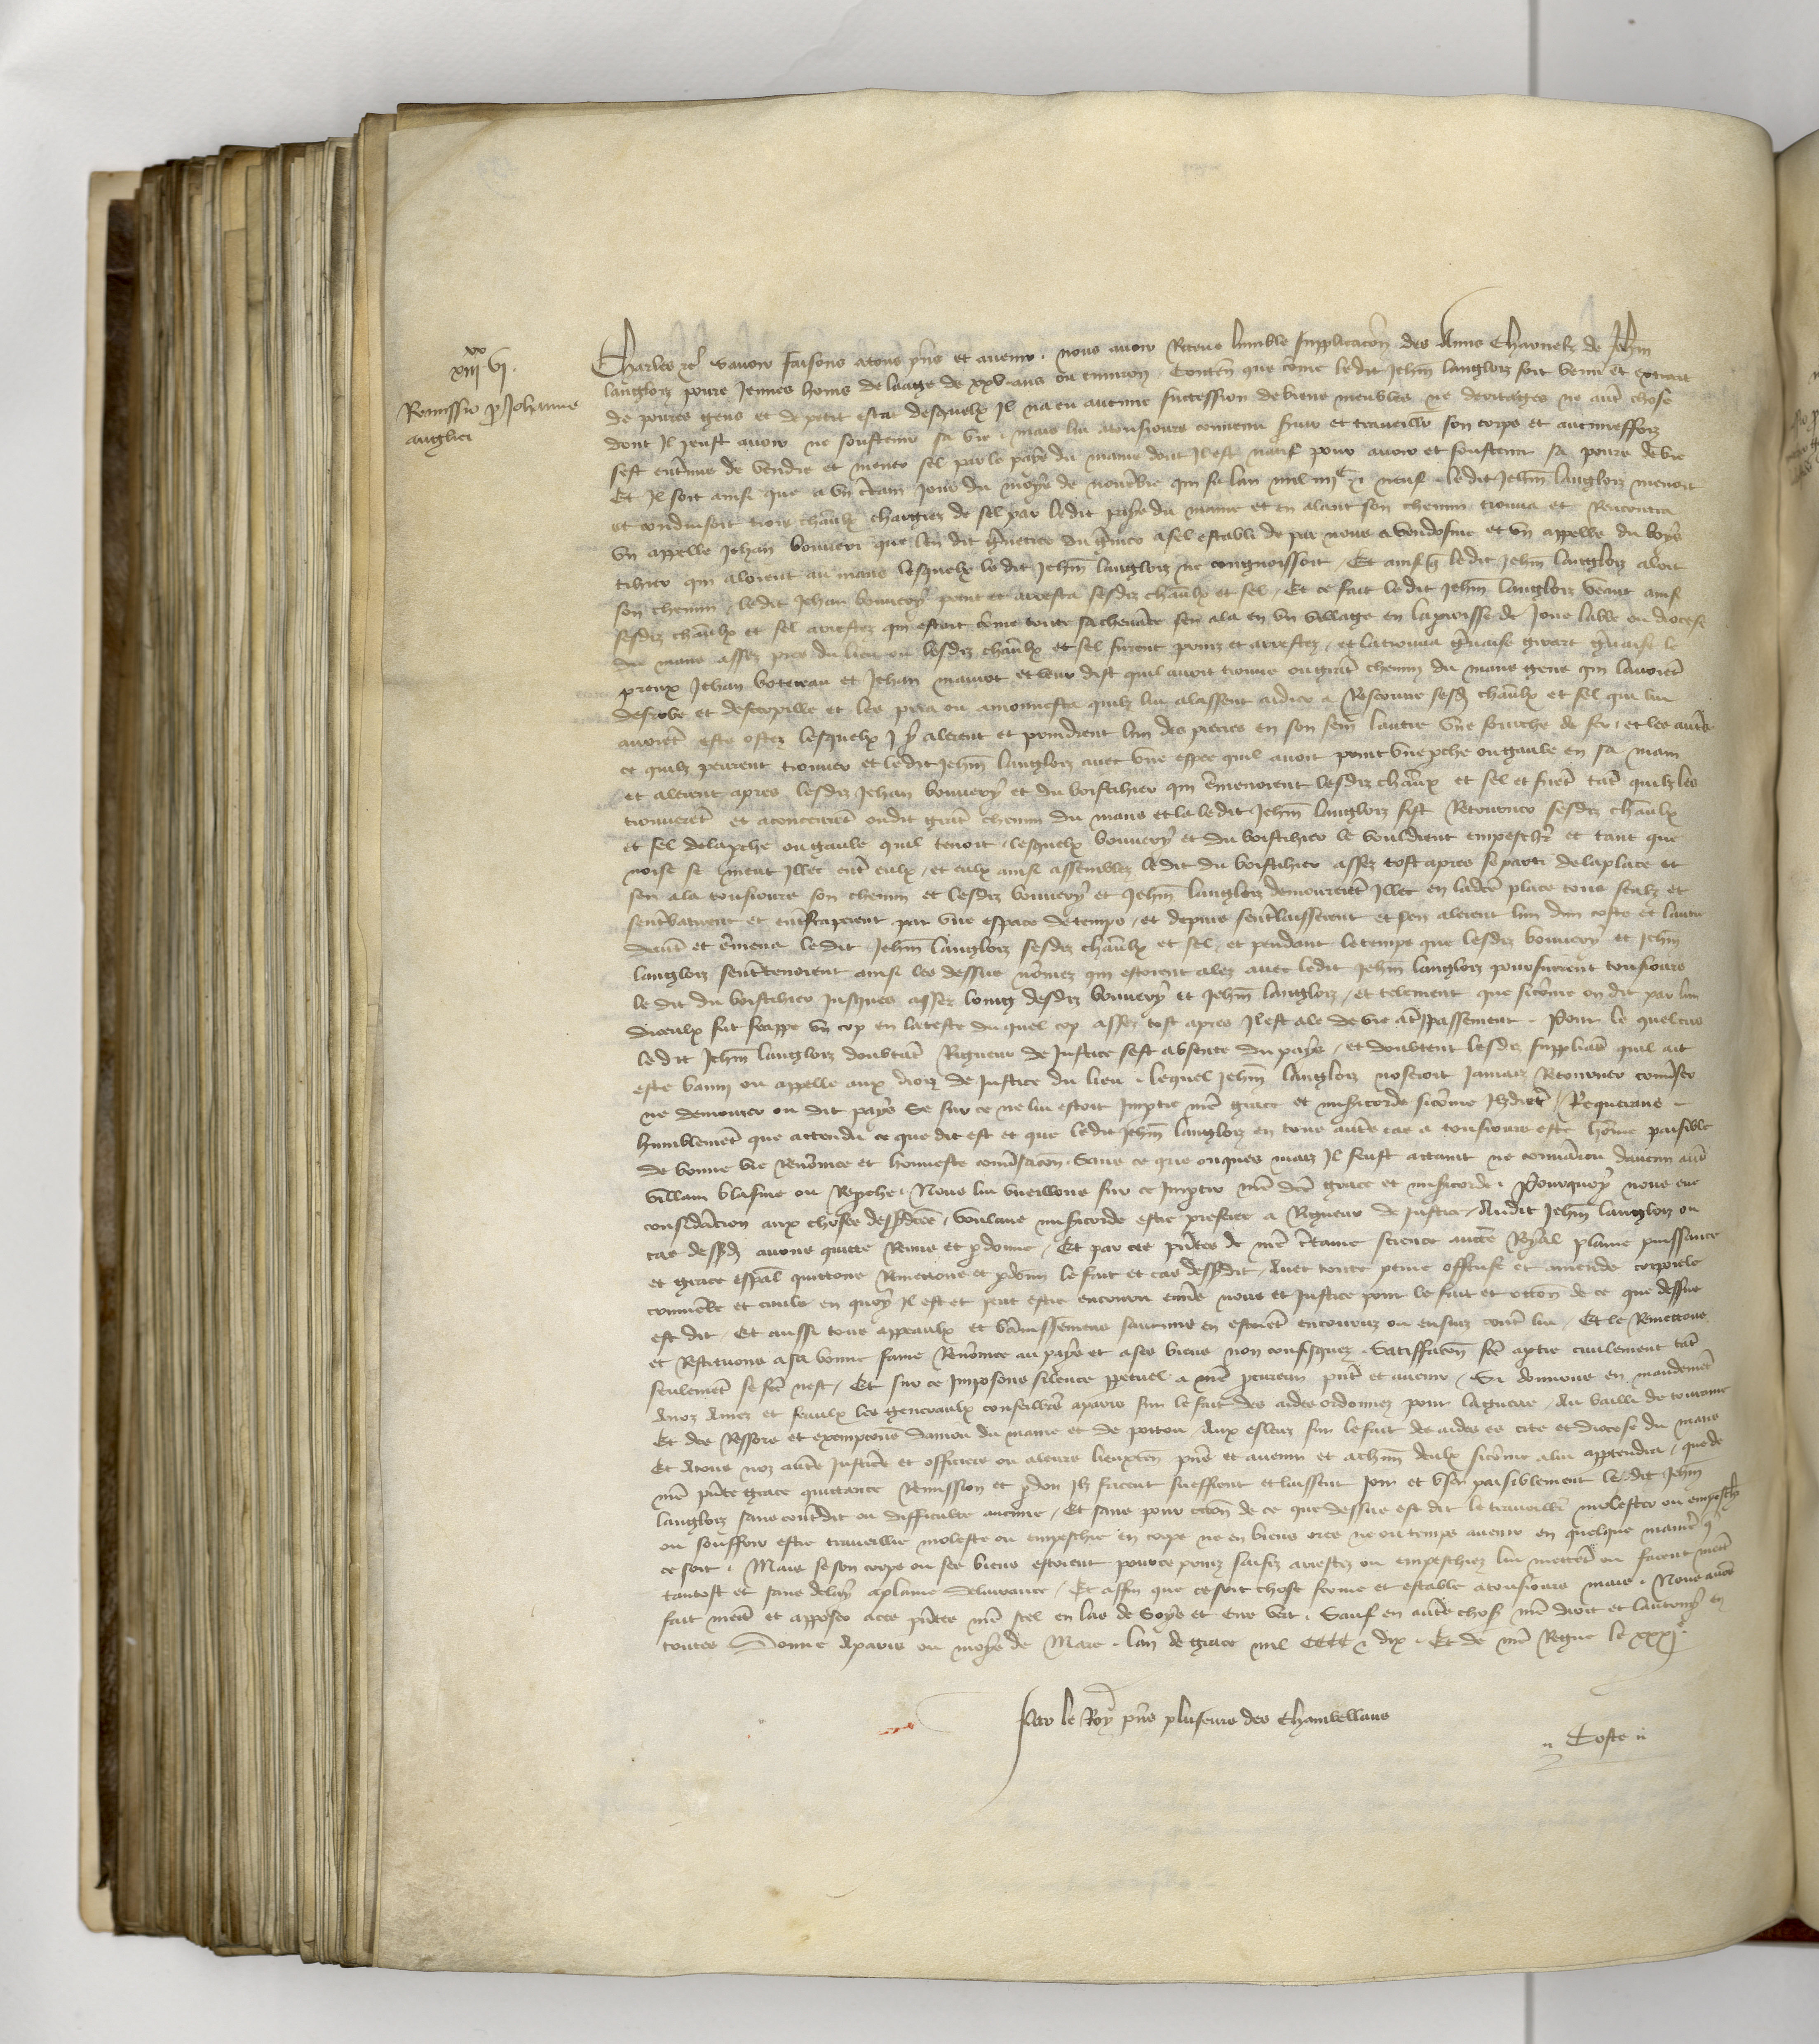 xiiii xx vi.
Remissio p Johanne
anglici
Charles rc̃ Savoir faisons atous p̃ns et avenir. nous avoir Receue lumble supplicacion des Amis Charnelz de Jehan
langlois povre Jeunes homs de laage de xxv ans ou environ. Conten̄ que cõme ledit Jehañ langlois soit venu et extrait
de povres gens et de petit estat desquelx Il na eu aucune succession de biens meubles ne deritages ne aut̃ chose
dont Il peust avoir ne soustenir sa vie. mais lui atousjours convenu servir et traveiller son corps et aucuneffoiz
sest entremis de vendre et mener sel par le pays du maine dont Il est natif pour avoir et soustenir sa povre de vie
Et Il soit ainsi que a un c̃tain jour du moys de novēbre qui fu lan mil iiii c et neuf. ledit Jehañ langlois menoit
et conduisoit trois chevaulx chargiez de sel par ledit pays du maine et en alant son chemin trouva et Rencontra
un appelle Jehan bouvery que len dit g̃netier du g̃nier asel establi de par nous a vendosme et un appelle du boys
tihier qui aloient au mans lesquelx ledit Jehañ langlois ne congnoissoit. Et ainsi q̃ ledit Jehañ langlois aloit
son chemin ledit Jehan bouvery print et arresta sesdiz chevaulx et sel. Et ce fait ledit Jehañ langlois veant ainsi
sesdiz chevaulx et sel arrestez qui estoit cõme toute sa chevance sen ala en un village en la parroisse de Joue labbe ou diocese
du mans assez pres du lieu ou lesdiz chevaulx et sel furent prins et arrestez. et la trouva g̃vaise girart g̃vaise le
preux Jehan botereau et Jehan mauvot et leur dist quil avoit trouve ou grant chemin du mans gens qui lavoient
desrobe et destroupille et les pria ou amonnesta quilz lui alassent aidier a Rescourre sesd̃ chevaulx et sel qui lui
avoient este ostez lesquelx y alerent et prindrent lun des pierres en son sein lautre une fourche de fer. et les aut̃s
ce quilz peurent trouver et ledit Jehañ langlois avec une espee quil avoit print une perche ou gaule en sa main
et alerent apres lesdiz Jehan bouvery et du boistihier qui ẽmenoient lesdiz chevaux et sel et firent tant quilz les
trouverent et aconceurent oudit grant chemin du mans et la ledit Jehañ langlois fist Retourner sesdiz chevaulx
et sel de la perche ou gaule quil tenoit. lesquelx bouvery et du boistihier le vouldrent empescher et tant que
noise se meut illec entre eulx. et eulx ainsi assemblez ledit du boistihier assez tost apres se parti de la place et
sen ala tousjours son chemin et lesdiz bouvery et Jehañ langlois demourerent illec en ladicte place tous seulz et
sentrebatirent et entrefraperent par une espace de temps. et depuis sentrelaisserent et sen alerent lun dun coste et lautre
dautre et ẽmena ledit Jehañ langlois sesdiz chevaulx et sel. et pendant le temps que lesdiz bouvery et Jehañ
langlois sentretenoient ainsi les dessus nõmez qui estoient alez avec ledit Jehañ langlois poursuirent tousjours
le dit du boistihier jusques assez loing desdiz bouvery et Jehañ langlois. et telement que sicõme on dit par lun
diceulx fut frappe un cop en la teste du quel cop assez tost apres Il est ale de vie a trespassement. Pour le quel cas
ledit Jehañ langlois doubtant Rigueur de Justice sest absente du pays. et doubtent lesdiz supplians quil ait
este banny ou appelle aux droiz de Justice du lieu. lequel Jehañ langlois noseroit jamais Retourner converser
ne demourer ou dit pays Se sur ce ne lui estoit impartie nr̃e grace et misericorde sicõme Ilz dient. Requerans
humblement que attendu ce que dit est et que ledit Jehañ langlois en tous autres cas a tousjours este hõme paisible
de bonne vie Renõmee et honneste conversacion. Sans ce que onques mais Il feust attaint ne convaincu daucun aut̃
villain blasme ou Reproche. Nous lui vueillons sur ce impartir nr̃e dicte grace et misericorde. Pourquoy nous eue
consideracion aux choses dessusdictes. Voulans misericorde estre preferee a Rigueur de justice. Audit Jehañ langlois ou
cas dessusd̃ avons quicte Remis et pardonne. Et par ces p̃ntes de nr̃e c̃taine science auct̃e Royal plaine puissance
et grace esp̃al quictons Remectons et pardonnons le fait et cas dessusdit. Avec toute peine offense et amende corporele
criminele et civile en quoy Il est et peut estre encouru envers nous et justice pour le fait et occasion de ce que dessus
est dit. Et aussi tous appeaulx et bannissemens saucuns en estoient encouruz ou ensuiz contre lui. Et le Remectons
et Restituons a sa bonne fame Renõmee au pays et a ses biens non confisquez. Satisfacion fc̃e a partie civilement tant
seulement se fc̃e nest. Et sur ce imposons silence perpetuel a nr̃e procureur p̃nt et avenir. Si donnons en mandement
Anoz Amez et feaulx les generaulx conseillers aparis sur le fait des aides ordonnez pour la guerre. Au bailli de touraine
Et des Ressors et exempcions danjou du maine et de poitou. Aux esleuz sur le fait des aides es cite et diocese du mans
Et Atous noz autres Justiciers et officiers ou aleurs lieuxten̄ p̃ns et avenir et achascun deulx sicõme a lui appartendra. que de
nr̃e p̃nte grace quictance Remission et pardon Ilz facent sueffrent et laissent joir et user paisiblement le dit Jehañ
langlois sans contredit ou difficulte aucune. Et sans pour occasion de ce que dessus est dit le traveillier molester ou empescher
ou souffrir estre traveillie moleste ou empeschie en corps ne en biens ores ne ou temps avenir en quelque maniere q̃
ce soit. Mais se son corps ou ses biens estoient pource prins saisiz arrestez ou empeschiez lui mectent ou facent mectre
tantost et sans delay a plaine delivrance. Et affin que ce soit chose ferme et estable atousjours mais. Nous avons
fait mectre et apposer aces p̃ntes nr̃e seel en laz de Soye et cire vert. Sauf en autres choses nr̃e droit et lautruy en
toutes Donne Aparis ou moys de Mars. lan de grace mil CCCC et dix. Et de nr̃e Regne le xxxj.
Par le Roy p̃ns pluseurs des Chambellans
Coste